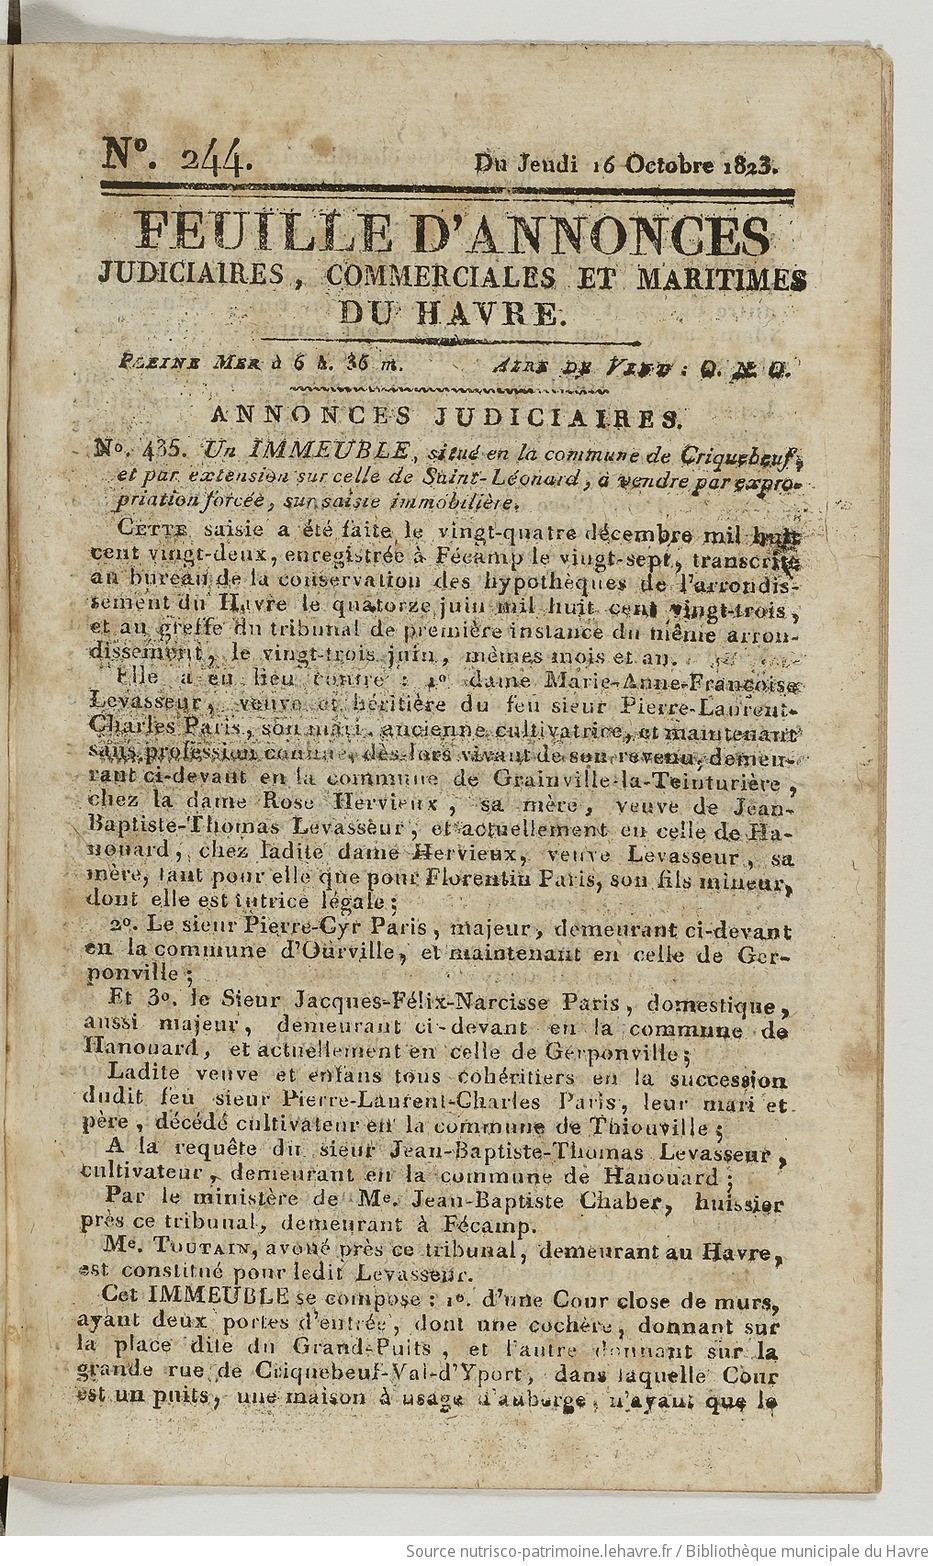 Nº. 244.
Du Jeudi 16 Octobre 1823.
FEUILLE D'ANNONCES
JUDICIAIRES, COMMERCIALES ET MARITIMES
DU HAVRE.
PLEINE MER à 6 h. 36 m.
AIRE DE VENT : O. N. O.
ANNONCES JUDICIAIRES.
Nº. 435. Un IMMEUBLE, situé en la commune de Criquebeuf,
et par extension sur celle de Saint-Léonard, à vendre par expro-
priation forcée, sur saisie immobilière.
CETTE saisie a été faite le vingt-quatre décembre mil huit
cent vingt-deux, enregistrée à Fécamp le vingt-sept, transcrite
au bureau de la conservation des hypothèques de l'arrondis-
sement du Havre le quatorze juin mil huit cent vingt-trois,
et au greffe du tribunal de première instance du même arron-
dissement, le vingt-trois juin, mêmes mois et an.
Elle a eu lieu contre : 1º dame Marie-Anne-Françoise
Levasseur, veuve et héritière du feu sieur Pierre-Laurent-
Charles Paris, son mari, ancienne cultivatrice, et maintenant
sans profession connue, dès-lors vivant de son revenu, demeu-
rant ci-devant en la commune de Grainville-la-Teinturière,
chez la dame Rose Hervieux, sa mère, veuve de Jean-
Baptiste-Thomas Levasseur, et actuellement en celle de Ha-
nouard, chez ladite dame Hervieux, veuve Levasseur, sa
mère, tant pour elle que pour Florentin Paris, son fils mineur,
dont elle est tutrice légale ;
2º. Le sieur Pierre-Cyr Paris, majeur, demeurant ci-devant
en la commune d'Ourville, et maintenant en celle de Ger-
ponville ;
Et 3º. le Sieur Jacques-Félix-Narcisse Paris, domestique,
aussi majeur, demeurant ci-devant en la commune de
Hanouard, et actuellement en celle de Gerponville ;
Ladite veuve et enfans tous cohéritiers en la succession
dudit feu sieur Pierre-Laurent-Charles Paris, leur mari et
père, décédé cultivateur en la commune de Thiouville ;
A la requête du sieur Jean-Baptiste-Thomas Levasseur,
cultivateur, demeurant en la commune de Hanouard ;
Par le ministère de Me. Jean-Baptiste Chaber, huissier
près ce tribunal, demeurant à Fécamp.
Me. TOUTAIN, avoué près ce tribunal, demeurant au Havre,
est constitué pour ledit Levasseur.
Cet IMMEUBLE se compose : 1º. d'une Cour close de murs,
ayant deux portes d'entrée, dont une cochère, donnant sur
la place dite du Grand-Puits, et l'autre donnant sur la
grande rue de Criquebeuf-Val-d'Yport, dans laquelle Cour
est un puits, une maison à usage d'auberge, n'ayant que le
Source nutrisco-patrimoine.lehavre.fr / Bibliothèque municipale du Havre